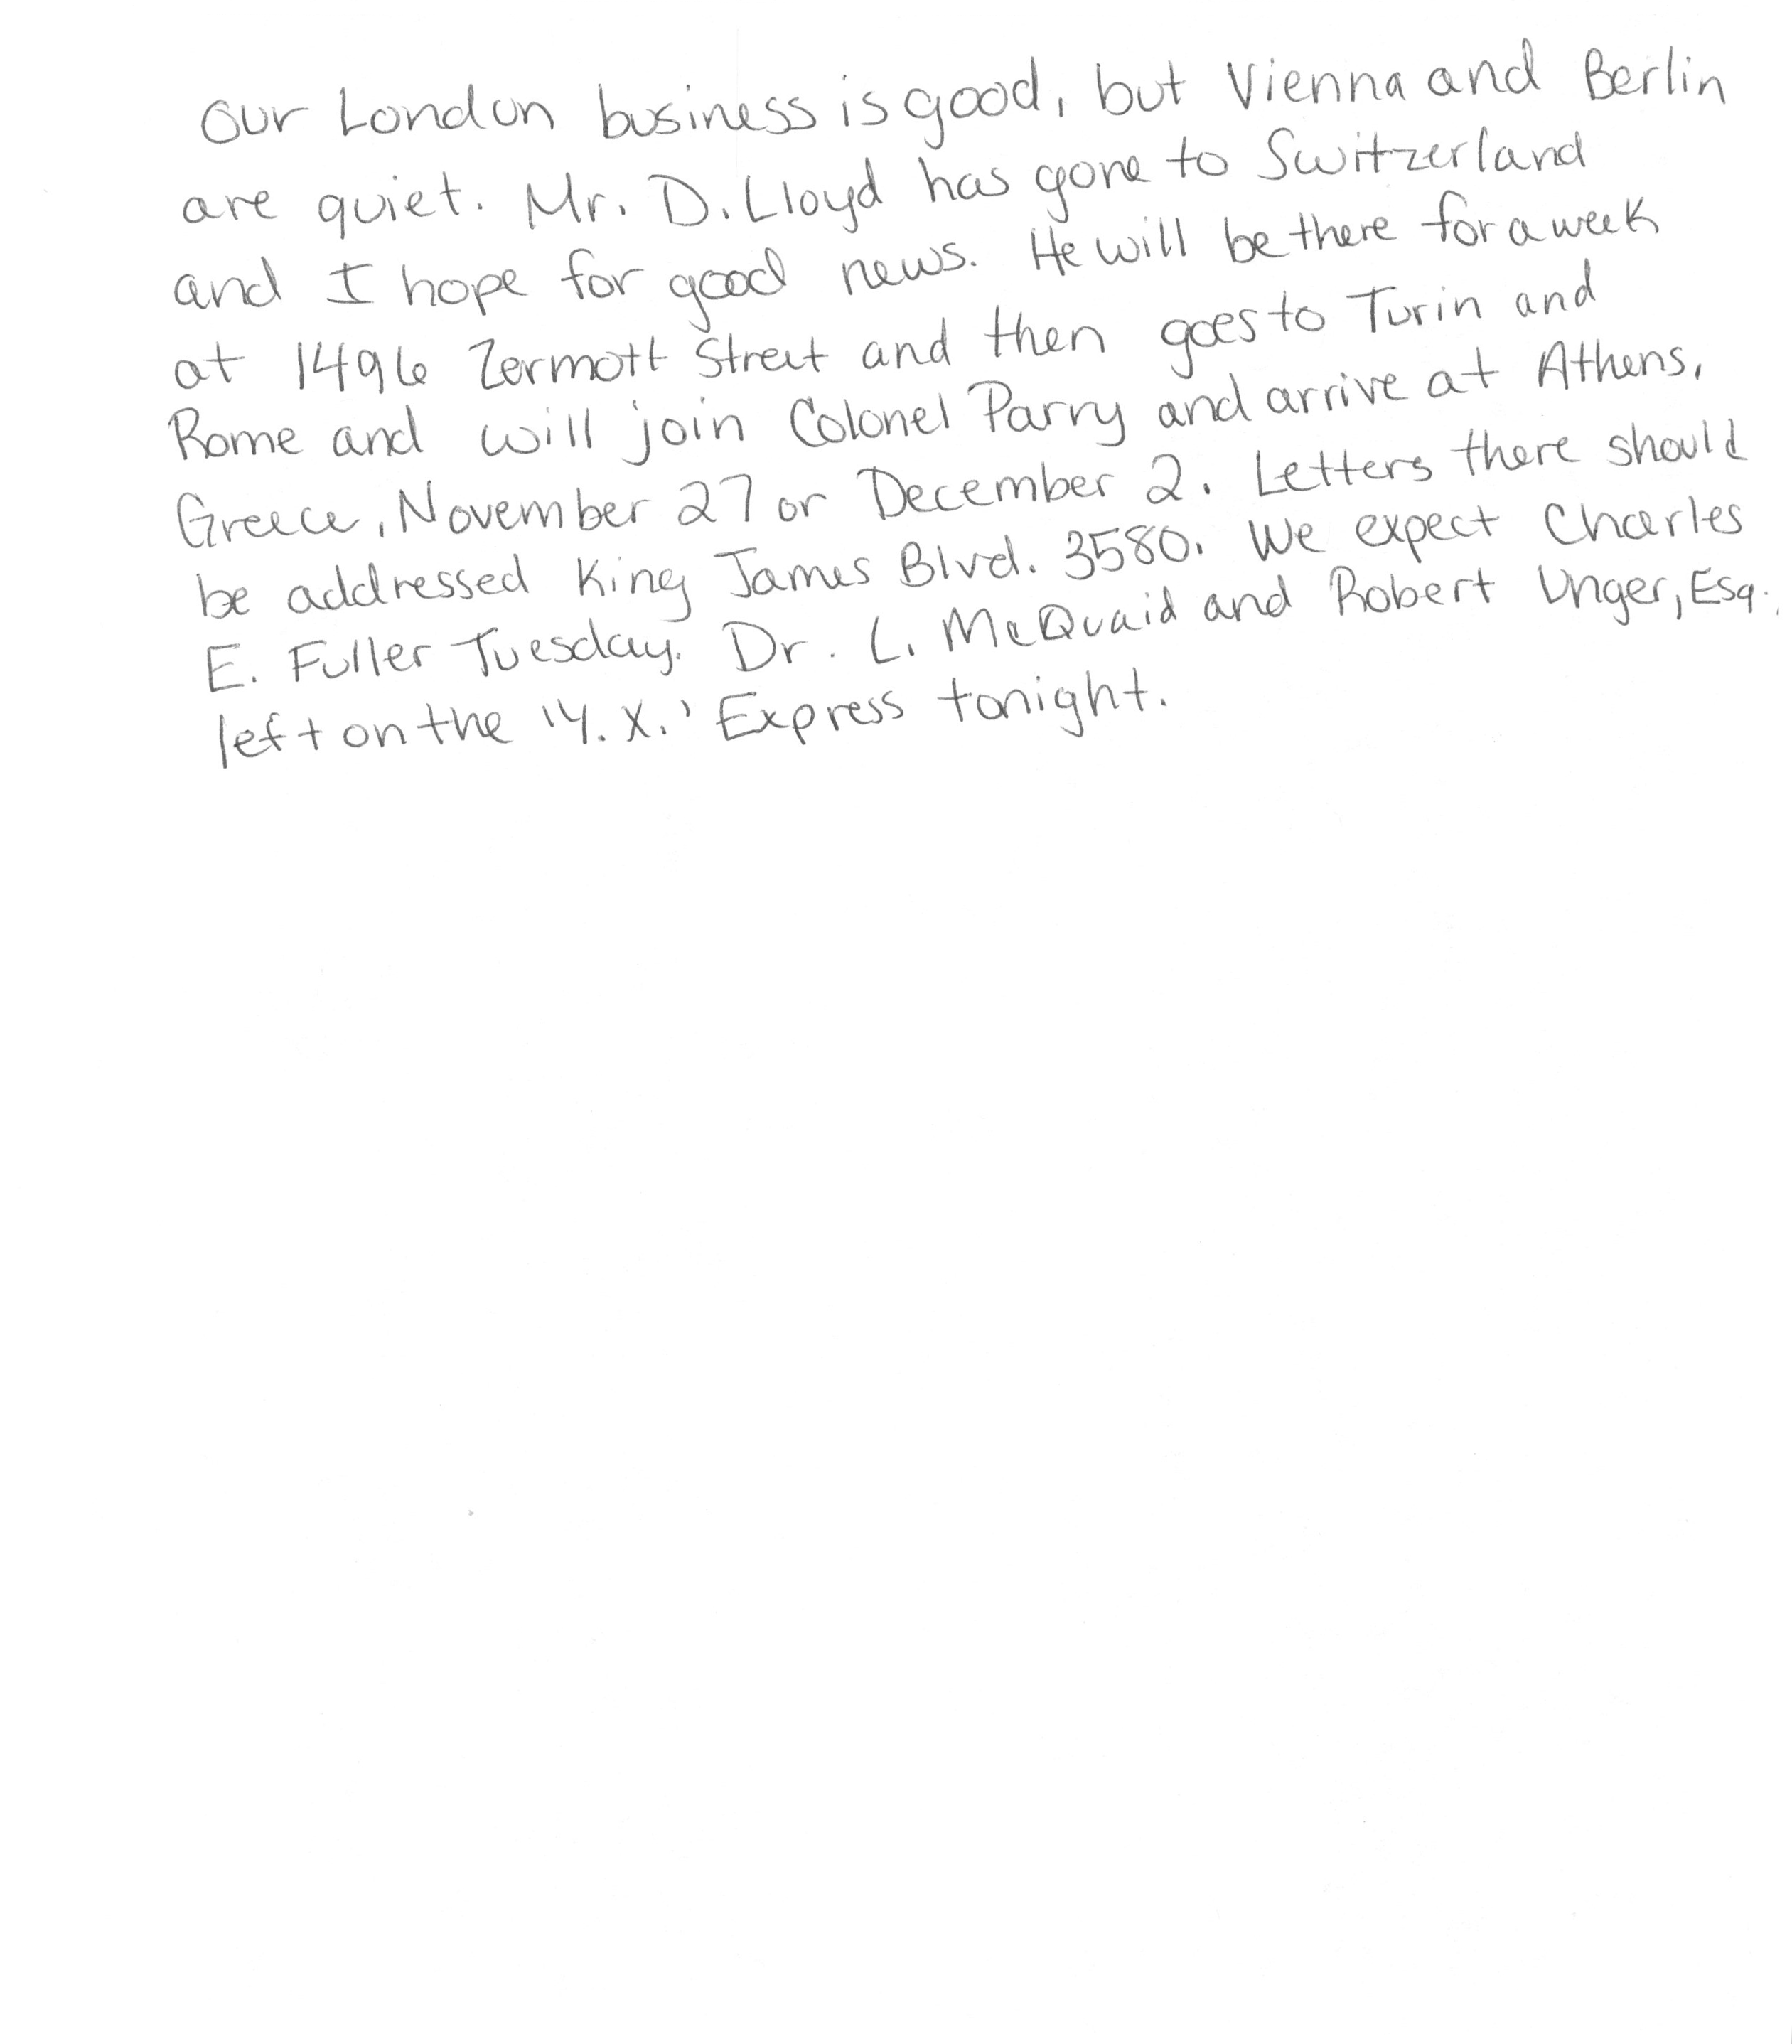 Our London business is good, but Vienna and Berlin
are quiet. Mr. D. Lloyd has gone to Switzerland
and I hope for good news. He will be there for a week
at 1496 Zermott Street and then goes to Turin and
Rome and will join Colonel Parry and arrive at Athens,
Greece, November 27 or December 2. Letters there should
be addressed King James Blvd. 3580. We expect Charles
E. Fuller Tuesday. Dr. L. McQuaid and Robert Unger, Esq.,
left on the 'Y. X.' Express tonight.